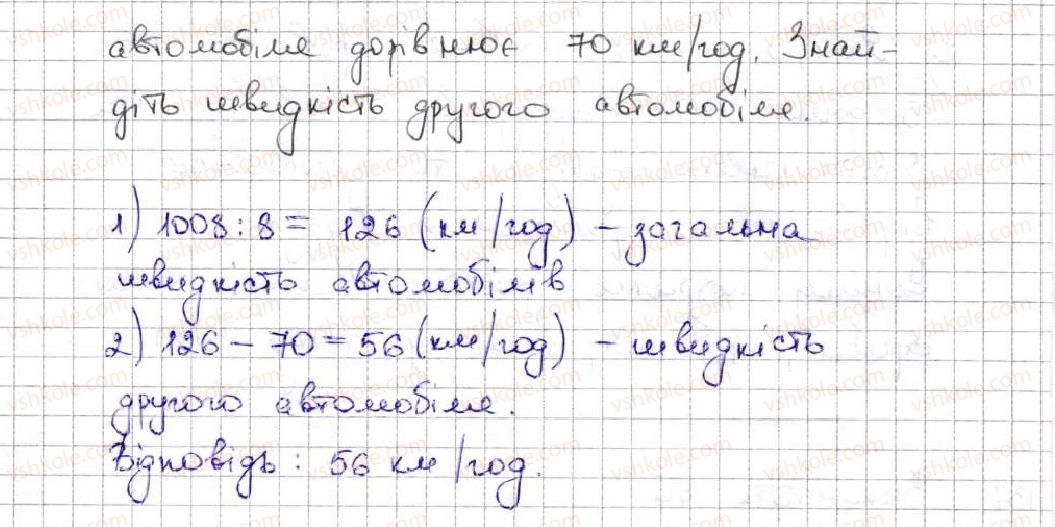 автомобіля дорівнює 70 км/год. Знай-
діть швидкість другого автомобіля.
1) 1008 : 8 = 126 (км/год) – загальна
швидкість автомобілів
2) 126 – 70 = 56 (км/год) – швидкість
другого автомобіля.
Відповідь : 56 км/год.